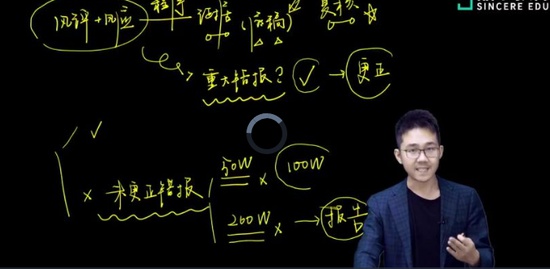 SINCERE EDU
风评+风应 程序 证据 (底稿) 复核 ☆
重大错报? ✓ → 更正
✓
× 未更正错报
50W × 100W
200W × → 报告